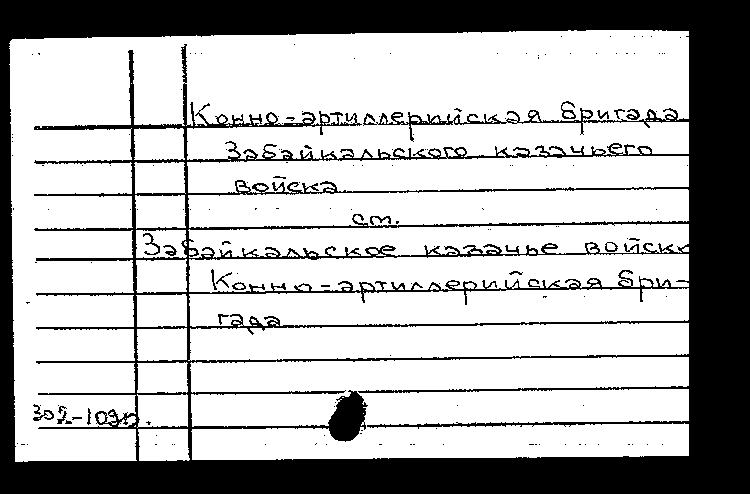 Конно-артиллерийская бригада
Забайкальского казачьего
войска
см.
Забайкальское казачье войско
Конно-артиллерийская бри-
гада